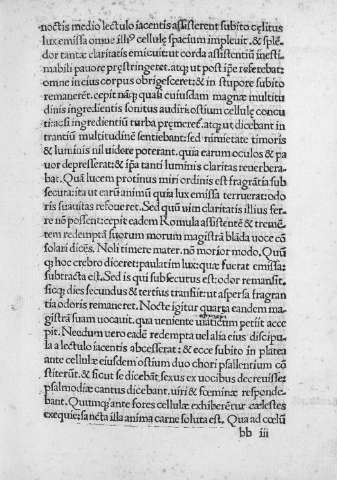 noctis medio lectulo iacentis assisterent subito cęlitus
lux emissa omne illiꝰ cellulę spacium impleuit. & splē-
dor tantæ claritatis emicuit: ut corda assistentiū inesti-
mabili pauore pręstringeret. atqꝫ ut post ip̄e referebat:
omne in eius corpus obrigesceret: & in stupore subito
remaneret. cepit nāqꝫ quasi cuiusdam magnæ multitu
dinis ingredientis sonitus audiri: ostium cellulę concu
ti: ac si ingredientiū turba pręmeret̄. atqꝫ ut dicebant in
trantiū multitudinē sentiebant: sed nimietate timoris
& luminis nil uidere poterant. quia earum oculos & pa
uor depresserat: & ip̄a tanti luminis claritas reuerbera-
bat. Quā lucem protinus miri ordinis est fragrātia sub
secura: ita ut earū animū quia lux emissa terruerat: odo
ris suauitas refoueret. Sed quū uim claritatis illius fer-
re nō possent: cepit eadem Romula assistentē & tremē-
tem redemptā suorum morum magistrā blāda uoce cō
solari dicēs. Noli timere mater. nō morior modo. Quū
qꝫ hoc crebro diceret: paulatim lux: quæ fuerat emissa:
subtracta est. Sed is qui subsecutus est: odor remansit.
sicqꝫ dies secundus & tertius transiit: ut aspersa fragran
tia odoris remaneret. Nocte igitur quarta eandem ma-
gistrā suam uocauit. qua ueniente uiaticum petiit acce
pit. Necdum uero eadē redempta uel alia eius discipu-
la a lectulo iacentis abcesserat: & ecce subito in platea
ante cellulæ eiusdem ostium duo chori psallentium cō
stiterūt. & sicut se dicebāt sexus ex uocibus decreuisse:
psalmodiæ cantus dicebant. uiri & fœminæ responde-
bant. Quūmqꝫ ante fores cellulæ exhiberēt̄ cælestes
exequiæ: sancta illa anima carne soluta est. Qua ad cœlū
bb iii